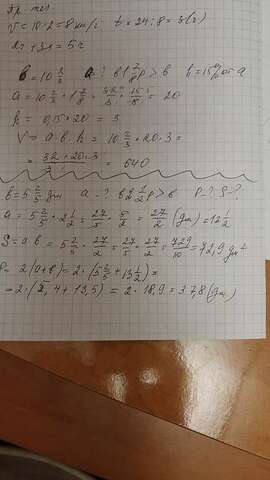 V = 10 - 2 = 8 км/ч t = 24 : 8 = 3 (ч)
2ч + 3ч = 5ч
b = 10 2/3 a - ? в 1 7/8 р > b h = 15% от a
a = 10 2/3 · 1 7/8 = 32/3 · 15/8 = 20
h = 0,15 · 20 = 3
V = a b h = 10 2/3 · 20 · 3 =
= 32 · 20 · 3 / 3 = 640
b = 5 2/5 дм a - ? в 2 1/2 р > b P - ? S - ?
a = 5 2/5 · 2 1/2 = 27/5 · 5/2 = 27/2 (дм) = 13 1/2
S = a b = 5 2/5 · 27/2 = 27/5 · 27/2 = 729/10 = 72,9 дм²
P = 2 (a + b) = 2 · (5 2/5 + 13 1/2) =
= 2 · (5,4 + 13,5) = 2 · 18,9 = 37,8 (дм)